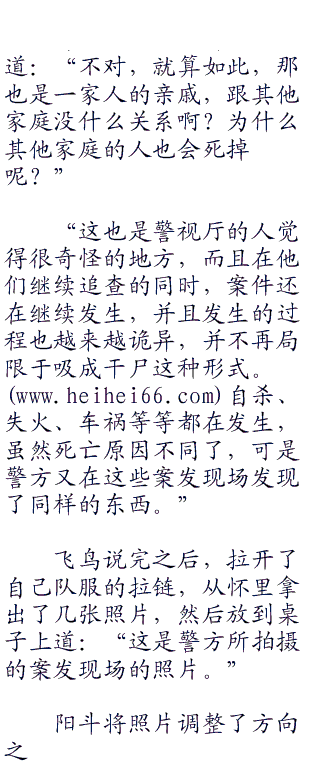 道：“不对，就算如此，那
也是一家人的亲戚，跟其他
家庭没什么关系啊？为什么
其他家庭的人也会死掉
呢？”
“这也是警视厅的人觉
得很奇怪的地方，而且在他
们继续追查的同时，案件还
在继续发生，并且发生的过
程也越来越诡异，并不再局
限于吸成干尸这种形式。
(www.heihei66.com)自杀、
失火、车祸等等都在发生，
虽然死亡原因不同了，可是
警方又在这些案发现场发现
了同样的东西。”
飞鸟说完之后，拉开了
自己队服的拉链，从怀里拿
出了几张照片，然后放到桌
子上道：“这是警方所拍摄
的案发现场的照片。”
阳斗将照片调整了方向
之